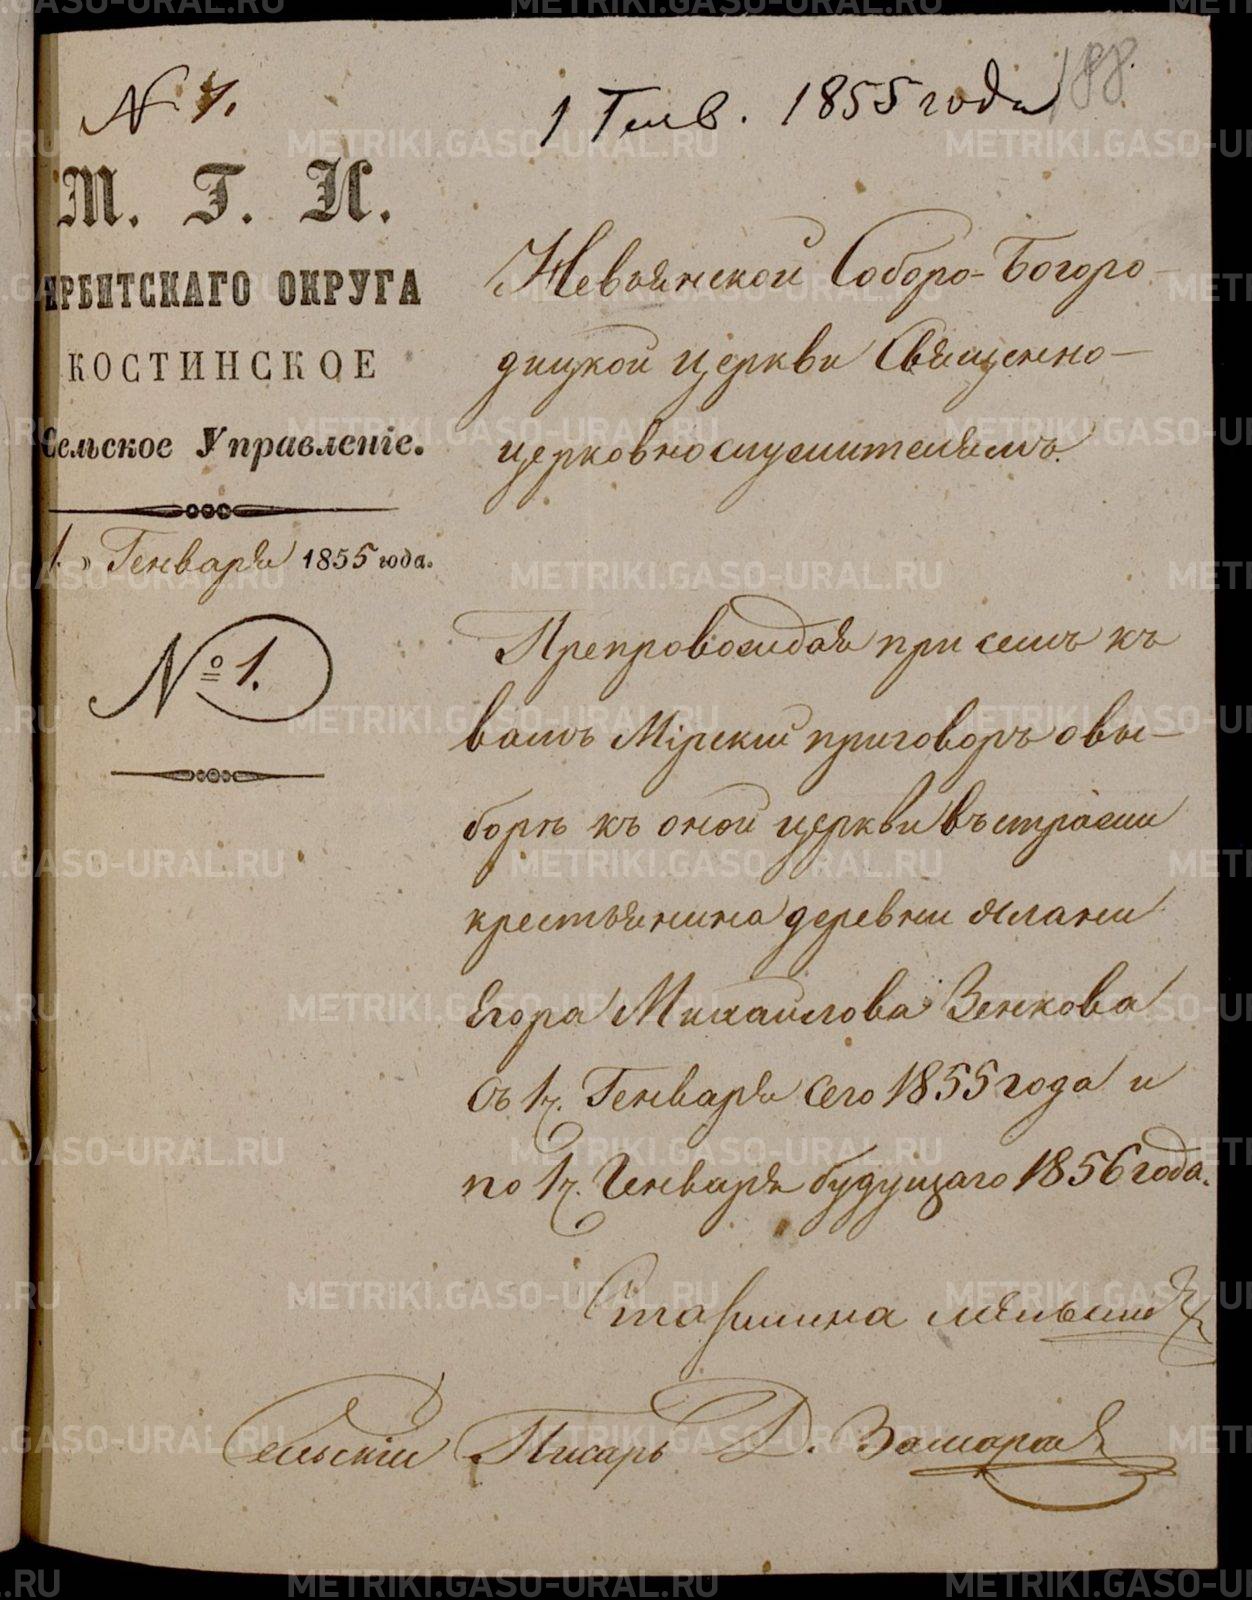 № 7.
1 Генв. 1855 года
188.
М. Г. И.
ИРБИТСКАГО ОКРУГА
КОСТИНСКОЕ
Сельское Управленіе.
1 » Генваря 1855 года.
№ 1.
Невьянской Соборо-Богоро-
дицкой церкви Священно-
церковнослужителямъ.
Препровождая при семъ къ
вамъ Мірскій приговоръ о вы-
борѣ къ оной церкви въ трапѣзники
крестьянина деревни Ялани
Егора Михайлова Зенкова
Съ 1ч. Генваря сего 1855 года и
по 1ч. Генваря будущаго 1856 года.
Старшина
Сельскій Писарь Д. Замараев
METRIKI.GASO-URAL.RU